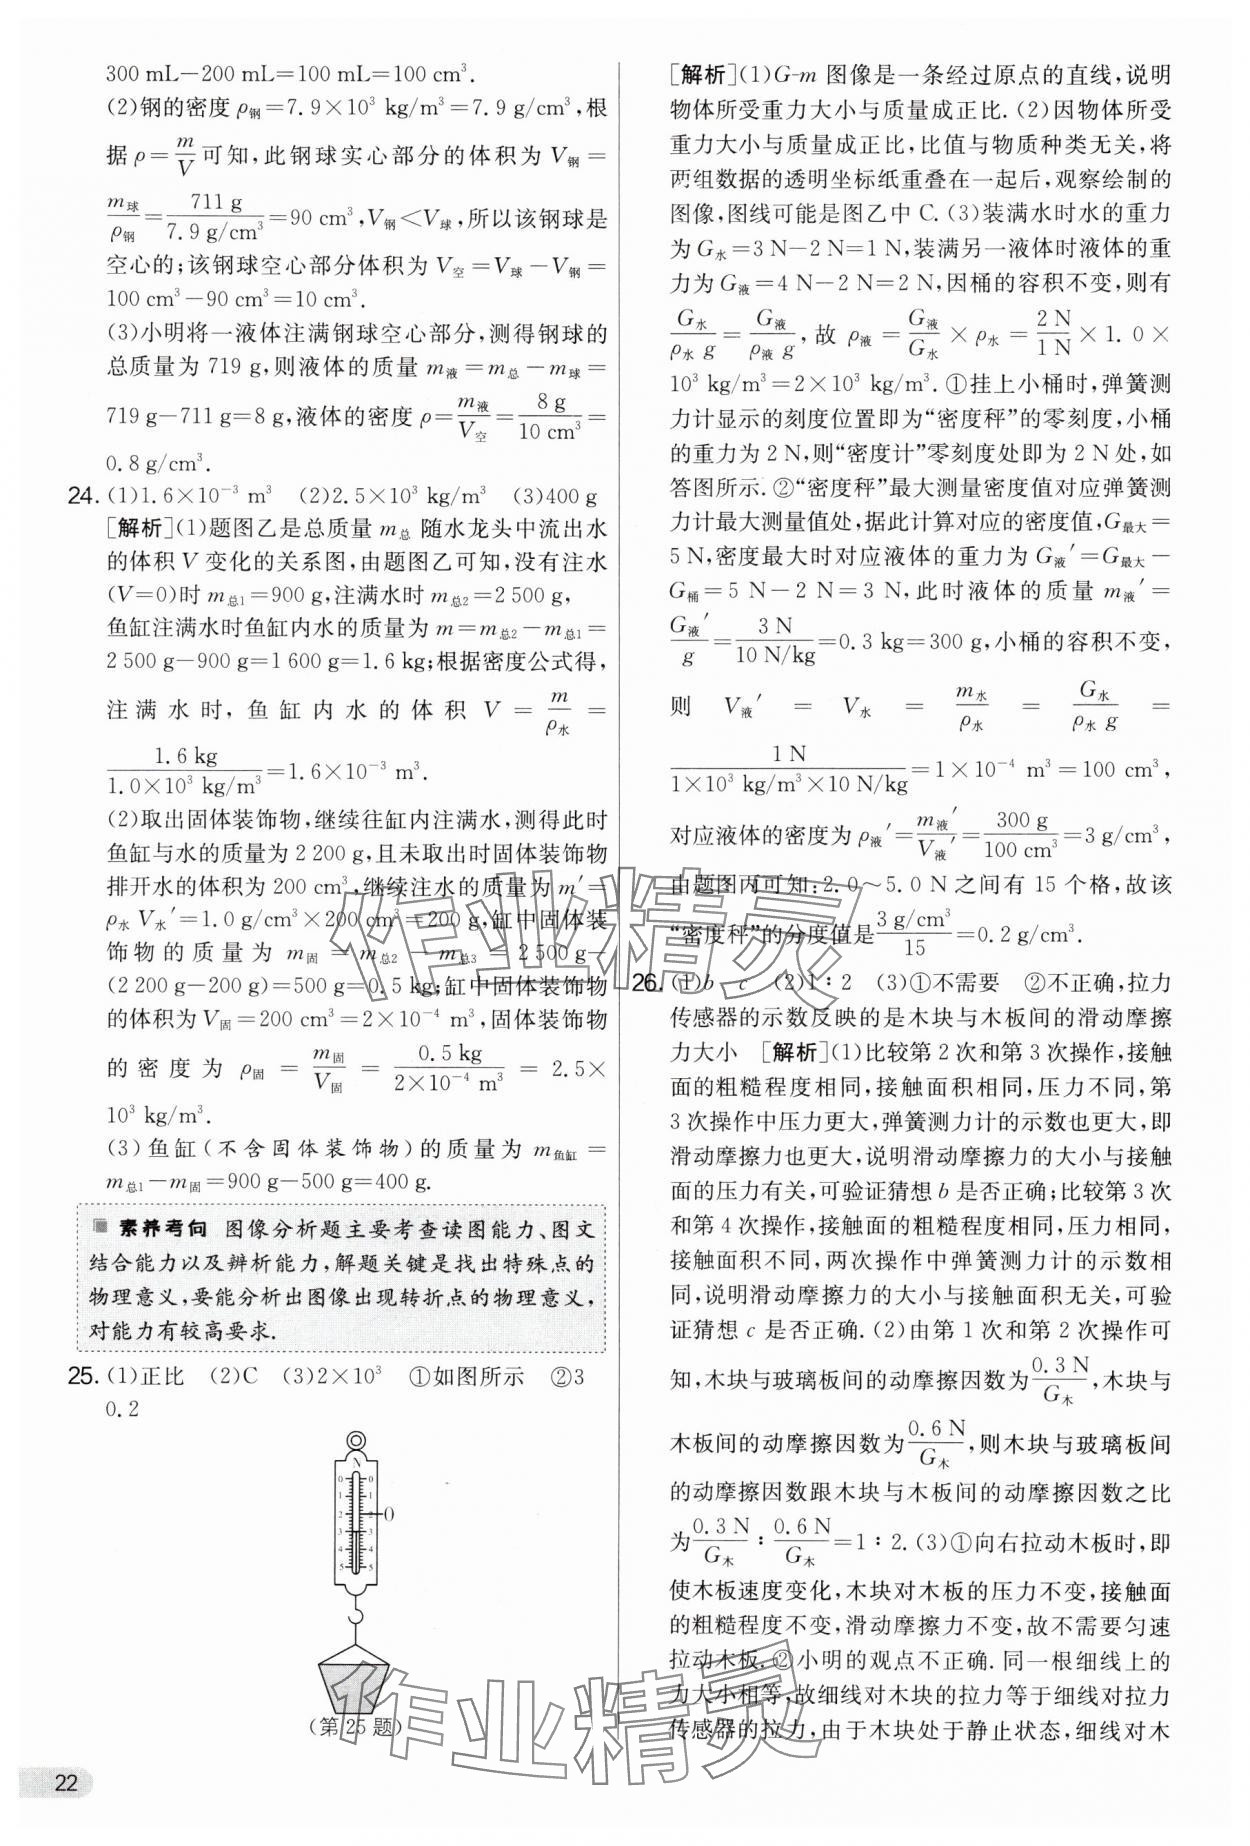 300 mL－200 mL＝100 mL＝100 cm³.
(2)钢的密度 ρ钢＝7.9×10³ kg/m³＝7.9 g/cm³,根
据 ρ＝m/V 可知，此钢球实心部分的体积为 V钢＝
m球/ρ钢＝711 g/7.9 g/cm³＝90 cm³,V钢＜V球,所以该钢球是
空心的;该钢球空心部分体积为 V空＝V球－V钢＝
100 cm³－90 cm³＝10 cm³.
(3)小明将一液体注满钢球空心部分,测得钢球的
总质量为 719 g,则液体的质量 m液＝m总－m球＝
719 g－711 g＝8 g,液体的密度 ρ＝m液/V空＝8 g/10 cm³＝
0.8 g/cm³.
24. (1)1.6×10⁻³ m³ (2)2.5×10³ kg/m³ (3)400 g
[解析](1)题图乙是总质量 m总 随水龙头中流出水
的体积 V 变化的关系图，由题图乙可知，没有注水
(V＝0)时 m总1＝900 g,注满水时 m总2＝2 500 g,
鱼缸注满水时鱼缸内水的质量为 m＝m总2－m总1＝
2 500 g－900 g＝1 600 g＝1.6 kg;根据密度公式得,
注满水时, 鱼缸内水的体积 V＝m/ρ水＝
1.6 kg/1.0×10³ kg/m³＝1.6×10⁻³ m³.
(2)取出固体装饰物,继续往缸内注满水,测得此时
鱼缸与水的质量为 2 200 g,且未取出时固体装饰物
排开水的体积为 200 cm³,继续注水的质量为 m′＝
ρ水 V水′＝1.0 g/cm³×200 cm³＝200 g,缸中固体装
饰物的质量为 m固＝m总2－m总3＝2 500 g－
(2 200 g－200 g)＝500 g＝0.5 kg;缸中固体装饰物
的体积为 V固＝200 cm³＝2×10⁻⁴ m³,固体装饰物
的密度为 ρ固＝m固/V固＝0.5 kg/2×10⁻⁴ m³＝2.5×
10³ kg/m³.
(3)鱼缸(不含固体装饰物)的质量为 m鱼缸＝
m总1－m固＝900 g－500 g＝400 g.
素养考向 图像分析题主要考查读图能力、图文
结合能力以及辨析能力,解题关键是找出特殊点的
物理意义,要能分析出图像出现转折点的物理意义,
对能力有较高要求.
25. (1)正比 (2)C (3)2×10³ ①如图所示 ②3
0.2
N
0 0
1 1
2 2 0
3 3
4 4
5 5
(第 25 题)
22
[解析](1)G-m 图像是一条经过原点的直线，说明
物体所受重力大小与质量成正比.(2)因物体所受
重力大小与质量成正比，比值与物质种类无关，将
两组数据的透明坐标纸重叠在一起后,观察绘制的
图像,图线可能是图乙中 C.(3)装满水时水的重力
为 G水＝3 N－2 N＝1 N,装满另一液体时液体的重
力为 G液＝4 N－2 N＝2 N,因桶的容积不变,则有
G水/ρ水 g＝G液/ρ液 g，故 ρ液＝G液/G水×ρ水＝2 N/1 N×1.0×
10³ kg/m³＝2×10³ kg/m³.①挂上小桶时,弹簧测
力计显示的刻度位置即为“密度秤”的零刻度,小桶
的重力为 2 N,则“密度计”零刻度处即为 2 N 处,如
答图所示.②“密度秤”最大测量密度值对应弹簧测
力计最大测量值处,据此计算对应的密度值,G最大＝
5 N,密度最大时对应液体的重力为 G液′＝G最大－
G桶＝5 N－2 N＝3 N，此时液体的质量 m液′＝
G液′/g＝3 N/10 N/kg＝0.3 kg＝300 g,小桶的容积不变,
则 V液′＝V水＝m水/ρ水＝G水/ρ水 g＝
1 N/1×10³ kg/m³×10 N/kg＝1×10⁻⁴ m³＝100 cm³,
对应液体的密度为 ρ液′＝m液′/V液′＝300 g/100 cm³＝3 g/cm³,
由题图丙可知:2.0～5.0 N 之间有 15 个格,故该
“密度秤”的分度值是3 g/cm³/15＝0.2 g/cm³.
26. (1)b c (2)1∶2 (3)①不需要 ②不正确,拉力
传感器的示数反映的是木块与木板间的滑动摩擦
力大小 [解析](1)比较第 2 次和第 3 次操作,接触
面的粗糙程度相同,接触面积相同,压力不同,第
3 次操作中压力更大,弹簧测力计的示数也更大,即
滑动摩擦力也更大,说明滑动摩擦力的大小与接触
面的压力有关,可验证猜想 b 是否正确;比较第 3 次
和第 4 次操作,接触面的粗糙程度相同,压力相同,
接触面积不同,两次操作中弹簧测力计的示数相
同,说明滑动摩擦力的大小与接触面积无关,可验
证猜想 c 是否正确.(2)由第 1 次和第 2 次操作可
知,木块与玻璃板间的动摩擦因数为0.3 N/G木,木块与
木板间的动摩擦因数为0.6 N/G木,则木块与玻璃板间
的动摩擦因数跟木块与木板间的动摩擦因数之比
为0.3 N/G木∶0.6 N/G木＝1∶2.(3)①向右拉动木板时,即
使木板速度变化,木块对木板的压力不变,接触面
的粗糙程度不变,滑动摩擦力不变,故不需要匀速
拉动木板.②小明的观点不正确.同一根细线上的
力大小相等,故细线对木块的拉力等于细线对拉力
传感器的拉力,由于木块处于静止状态,细线对木
作业精灵
作业精灵